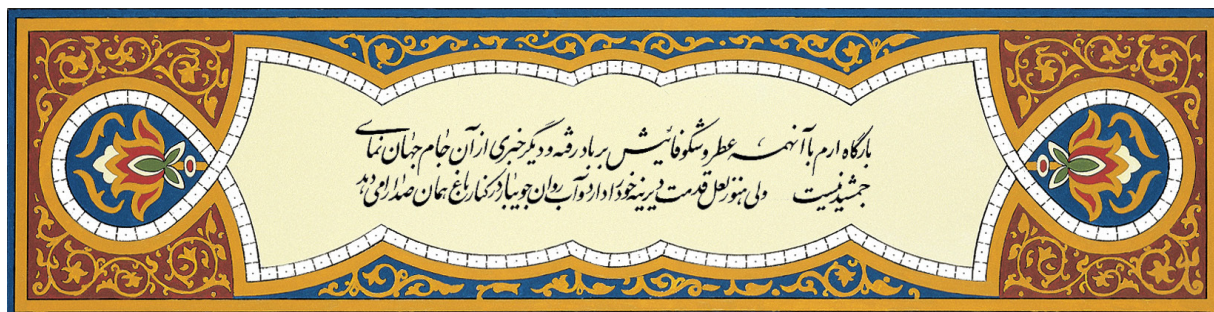 بارگاه ارم با آنهمه عطر و شکوفائیش بر باد رفته و دیگر خبری از آن جام جهان نمای
جمشید نیست ولی هنوز لعل قدمت دیرینه خود را دارد و آب روان جویبار در کنار باغ همان صدا را می دهد